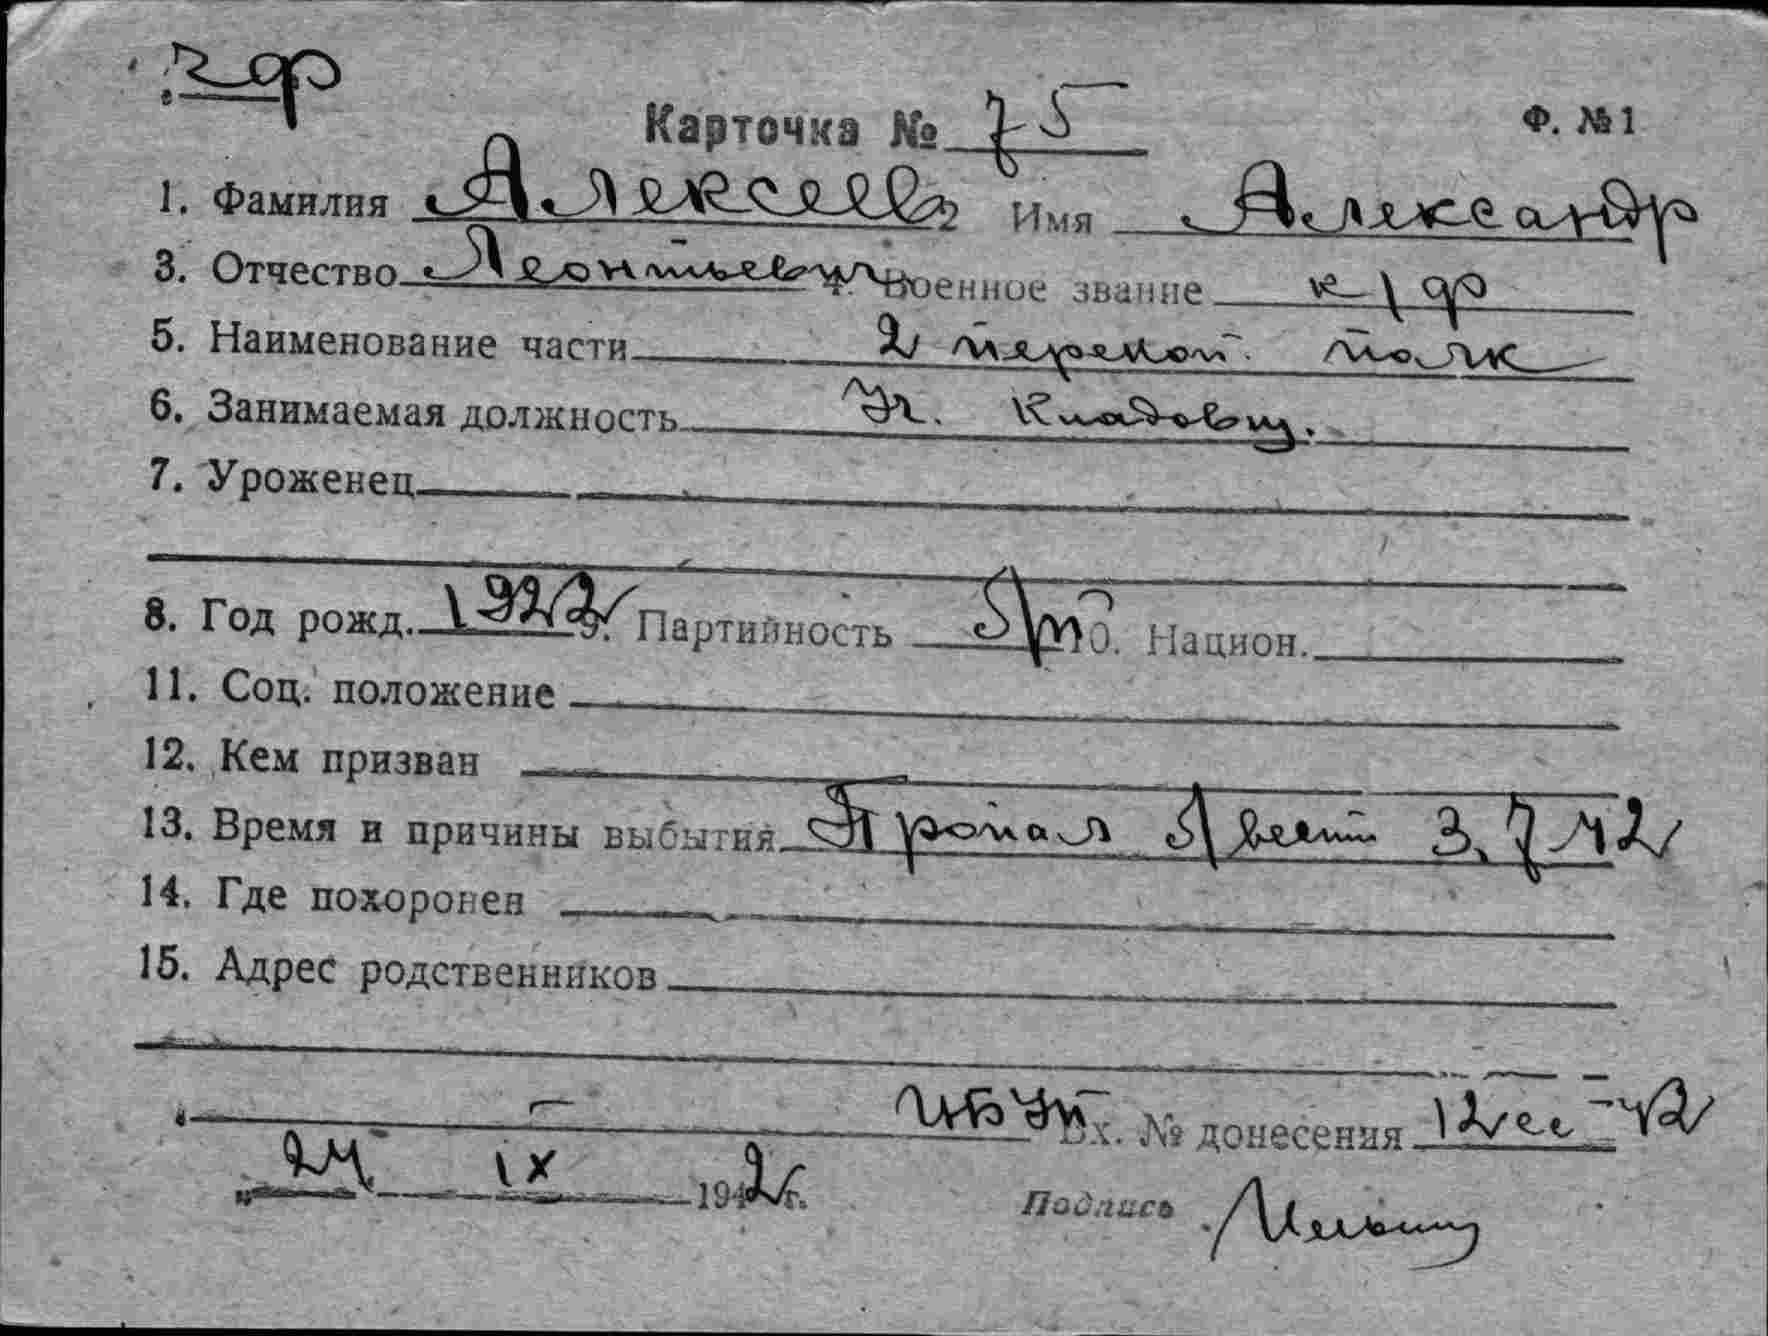 кф
Карточка № 75 Ф. №1
1. Фамилия Алексеев 2 Имя Александр
3. Отчество Леонтьевич 4. Военное звание к/ф
5. Наименование части 2 перекоп. полк
6. Занимаемая должность Уч. Кладовщ.
7. Уроженец
8. Год рожд. 1922 9. Партийность б/п 10. Национ.
11. Соц. положение
12. Кем призван
13. Время и причины выбытия Пропал б/вест 3.7 42
14. Где похоронен
15. Адрес родственников
Вх. № донесения 12сс - 42
„24" IX 1942 г. Подпись